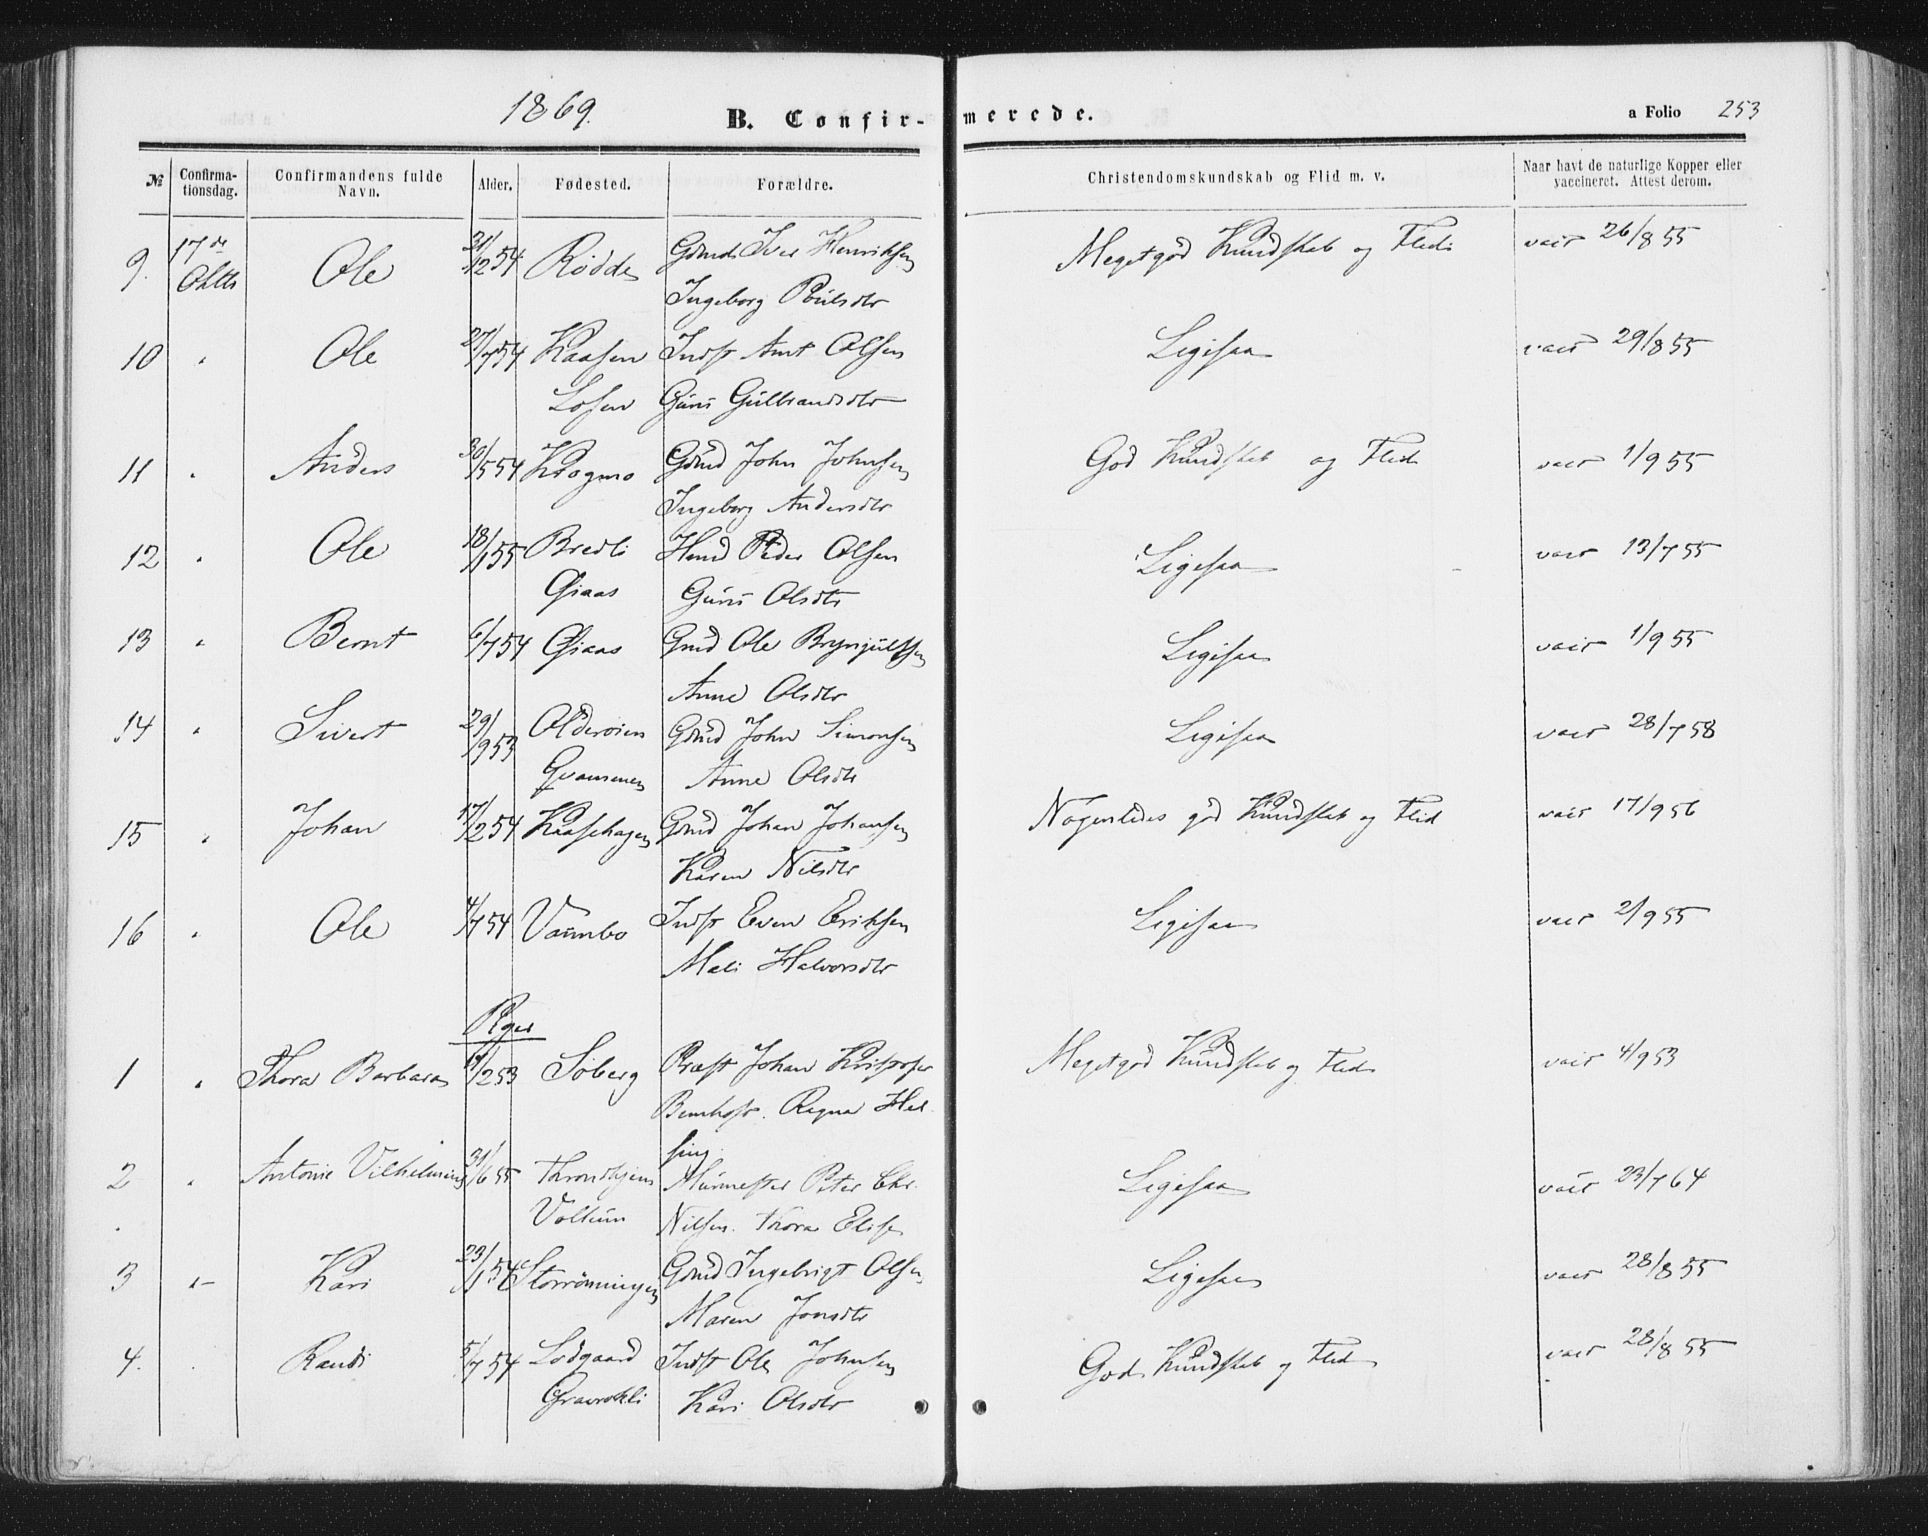 1869. B. Confirmerede. a Folio 253
№ Confirmationsdag. Confirmandens fulde Navn. Alder. Fødested. Forældre. Christendomskundskab og Flid m. v. Naar havt de naturlige Kopper eller vaccineret. Attest derom.
9. 17de Ole 21/12 54 Rødde Iver Henriksen Megetgod Kundskab og Flid vacc 26/8 55
Ingeborg Poulsdtr
10 " Ole 27/7 54 Kaasen Indst Arnt Olsen Ligesaa vacc 29/8 55
Losen Guri Gulbrandsdtr
11 " Anders 30/5 54 Krogmo Gdmd John Johnsen God Kundskab og Flid vacc 1/9 55
Ingeborg Andersdtr
12 " Ole 18/1 55 Bredli Hmd Peder Olsen Ligesaa vacc 13/7 55
Giaas Guri Olsdtr
13 " Bernt 6/7 54 Giaas Gmd Ole Brynjulfsen Ligesaa vacc 1/9 55
Anne Olsdtr
14 " Sivert 29/9 53 Olderøien Gdmd John Simonsen Ligesaa vacc 28/7 58
Anne Olsdtr
15 " Johan 17/2 54 Kaashagen Gdmd Johan Johansen Nogenledes god Kundskab og Flid vacc 17/9 56
Karen Nilsdtr
16 " Ole 4/7 54 Vaumbo Indst Even Eriksen Ligesaa vacc 2/9 55
Mali Halvorsdtr
Pger
1 " Thora Barbara 53 Søberg Præst Johan Megetgod Kundskab og Flid vacc 4/9 53
Ragna Hel
sing
2 " Antonie Vilhelmine 6 55 Throndhjem Murmester Peter Chr. Ligesaa vacc 23/7 64
Nilsen. Thora Elise
3 " Kari 23/1 54 Storrønningen Gdmd Ingebrigt Olsen Ligesaa vacc 28/8 55
Maren Jonsdtr
4. Randi 5/7 54 Lodgaard Indst Ole Johnsen God Kundskab og Flid vacc 28/8 55
Gravråkli Kari Olsdtr